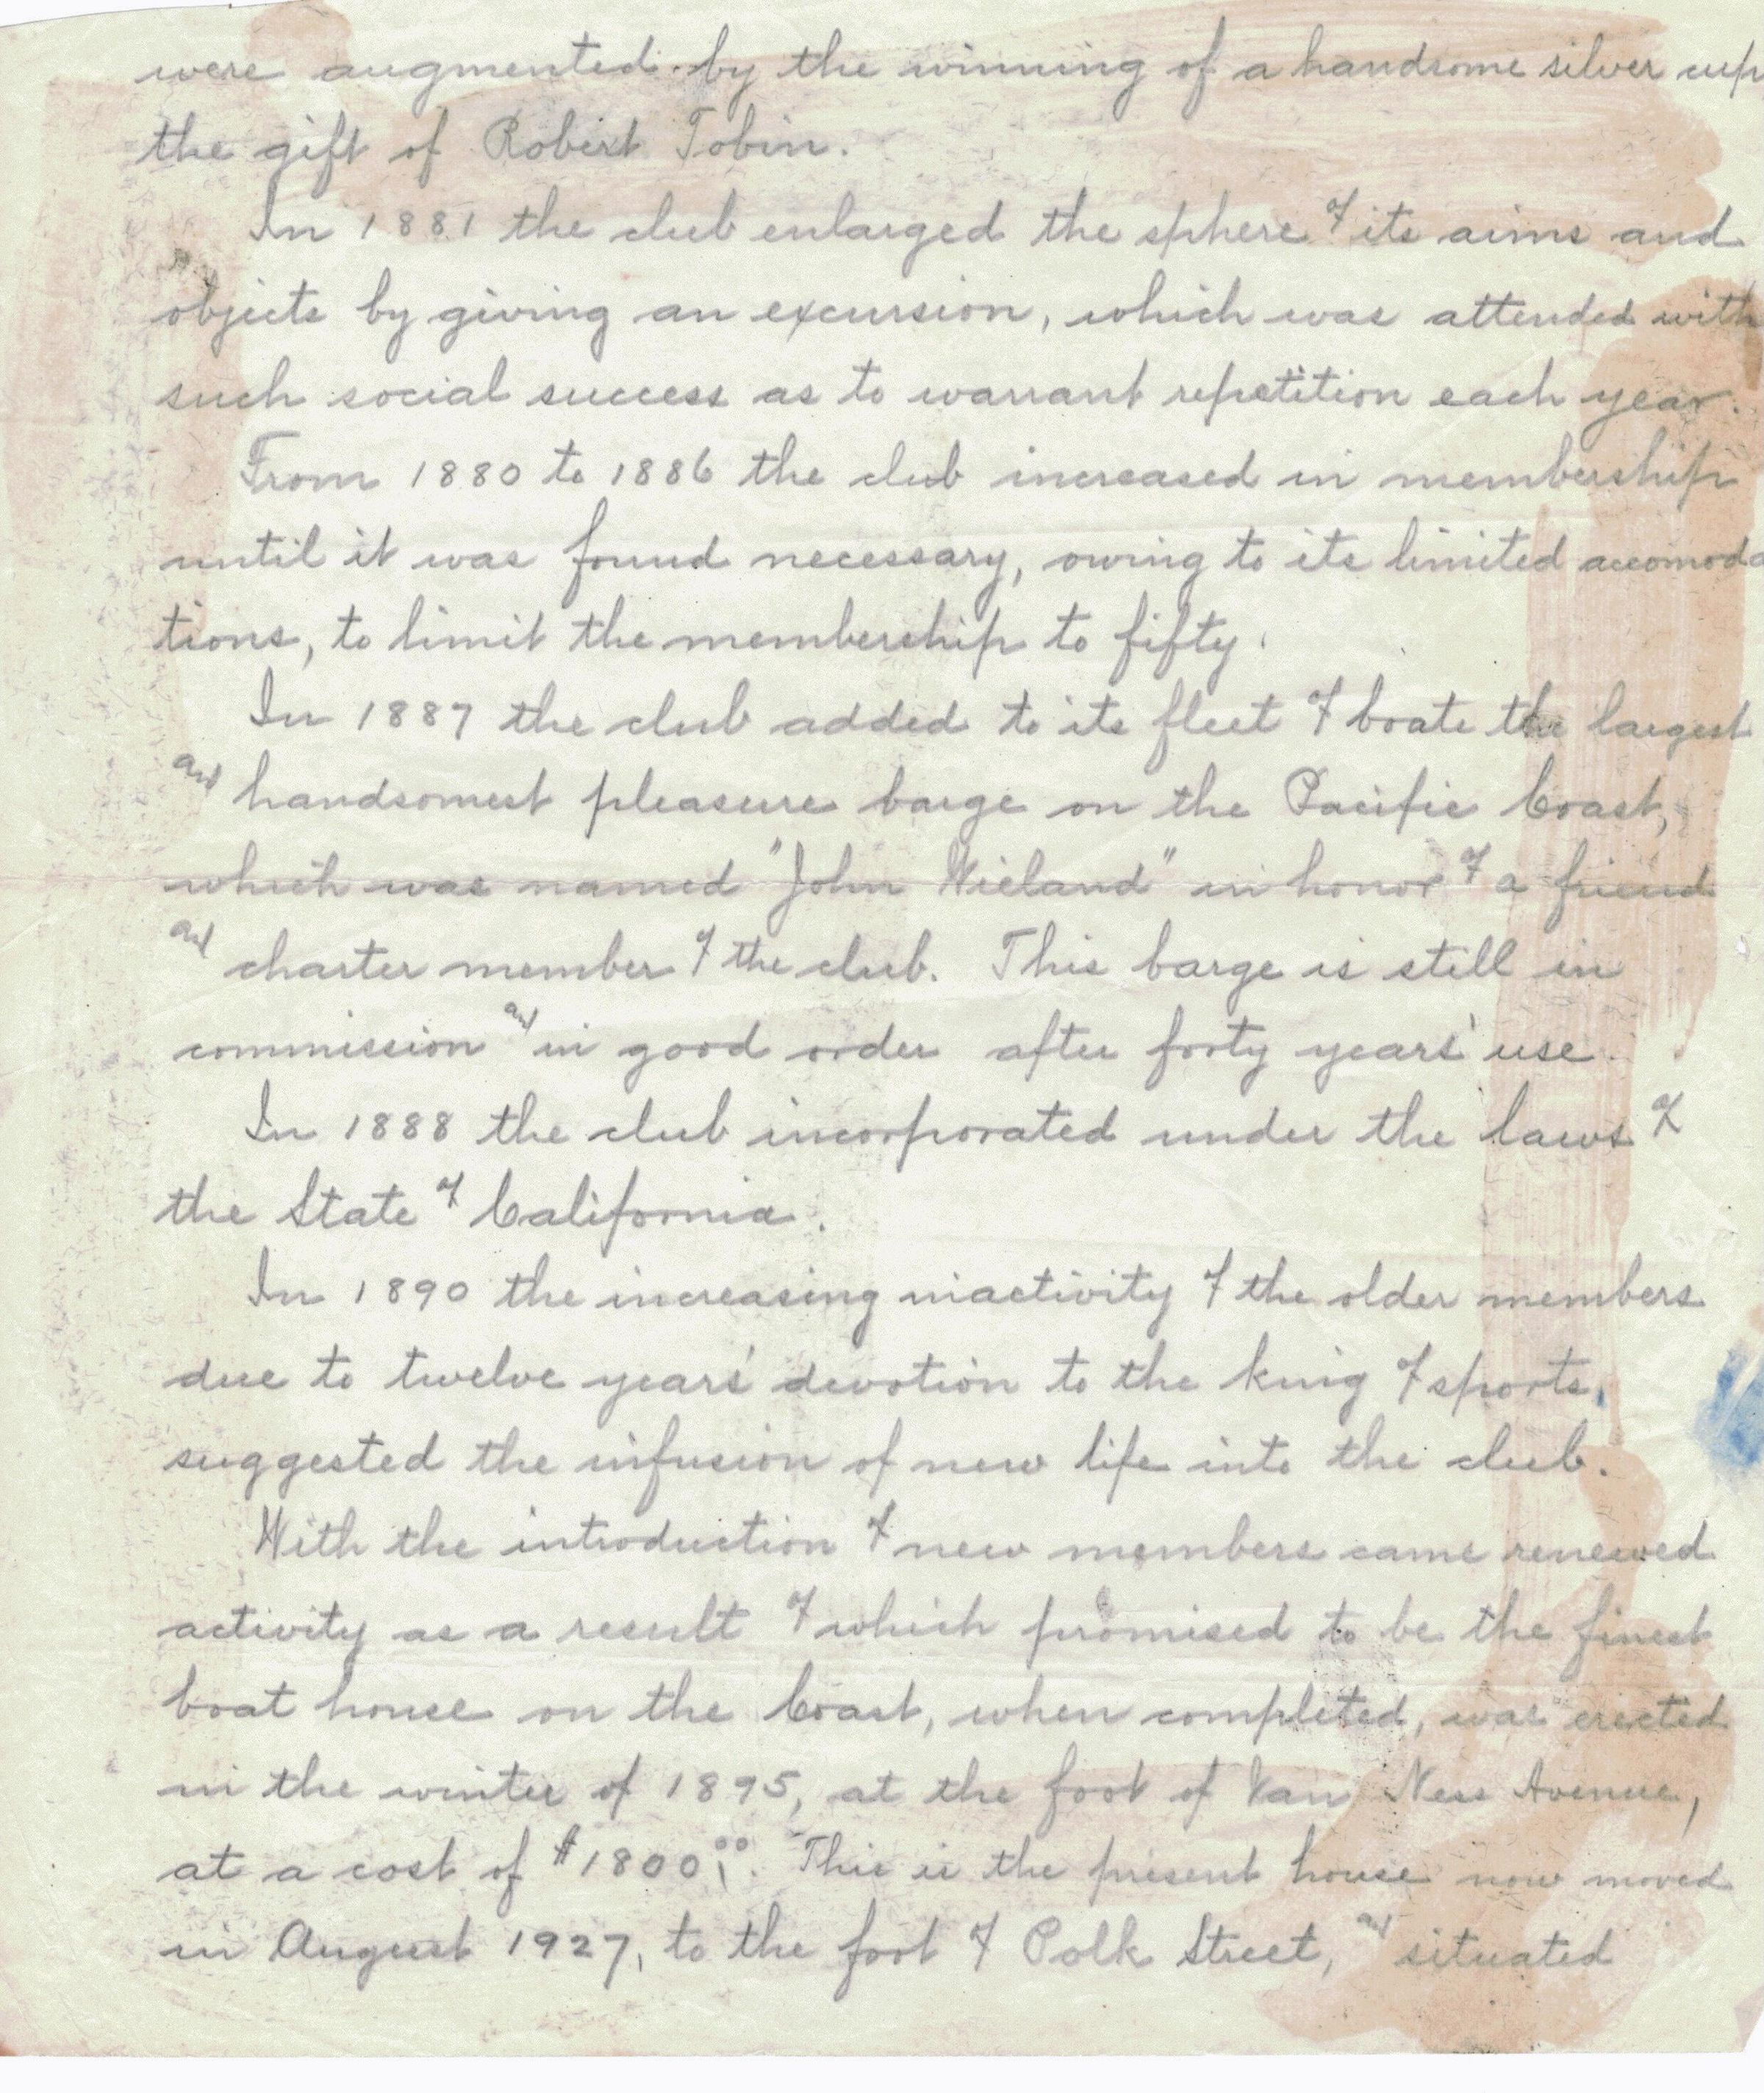 were augmented by the winning of a handsome silver cup
the gift of Robert Tobin.
In 1881 the club enlarged the sphere of its aims and
objects by giving an excursion, which was attended with
such social success as to warrant repetition each year.
From 1880 to 1886 the club increased in membership
until it was found necessary, owing to its limited accomoda
tions, to limit the membership to fifty.
In 1887 the club added to its fleet of boats the largest
and handsomest pleasure barge on the Pacific Coast,
which was named "John Wieland" in honor of a friend
and charter member of the club. This barge is still in
commission and in good order after forty years' use.
In 1888 the club incorporated under the laws of
the State of California.
In 1890 the increasing inactivity of the older members
due to twelve years' devotion to the king of sports,
suggested the infusion of new life into the club.
With the introduction of new members came renewed
activity as a result of which promised to be the finest
boat house on the Coast, when completed, was erected
in the winter of 1895, at the foot of Van Ness Avenue,
at a cost of $1800.00. This is the present house now moved
in August 1927, to the foot of Polk Street, and situated